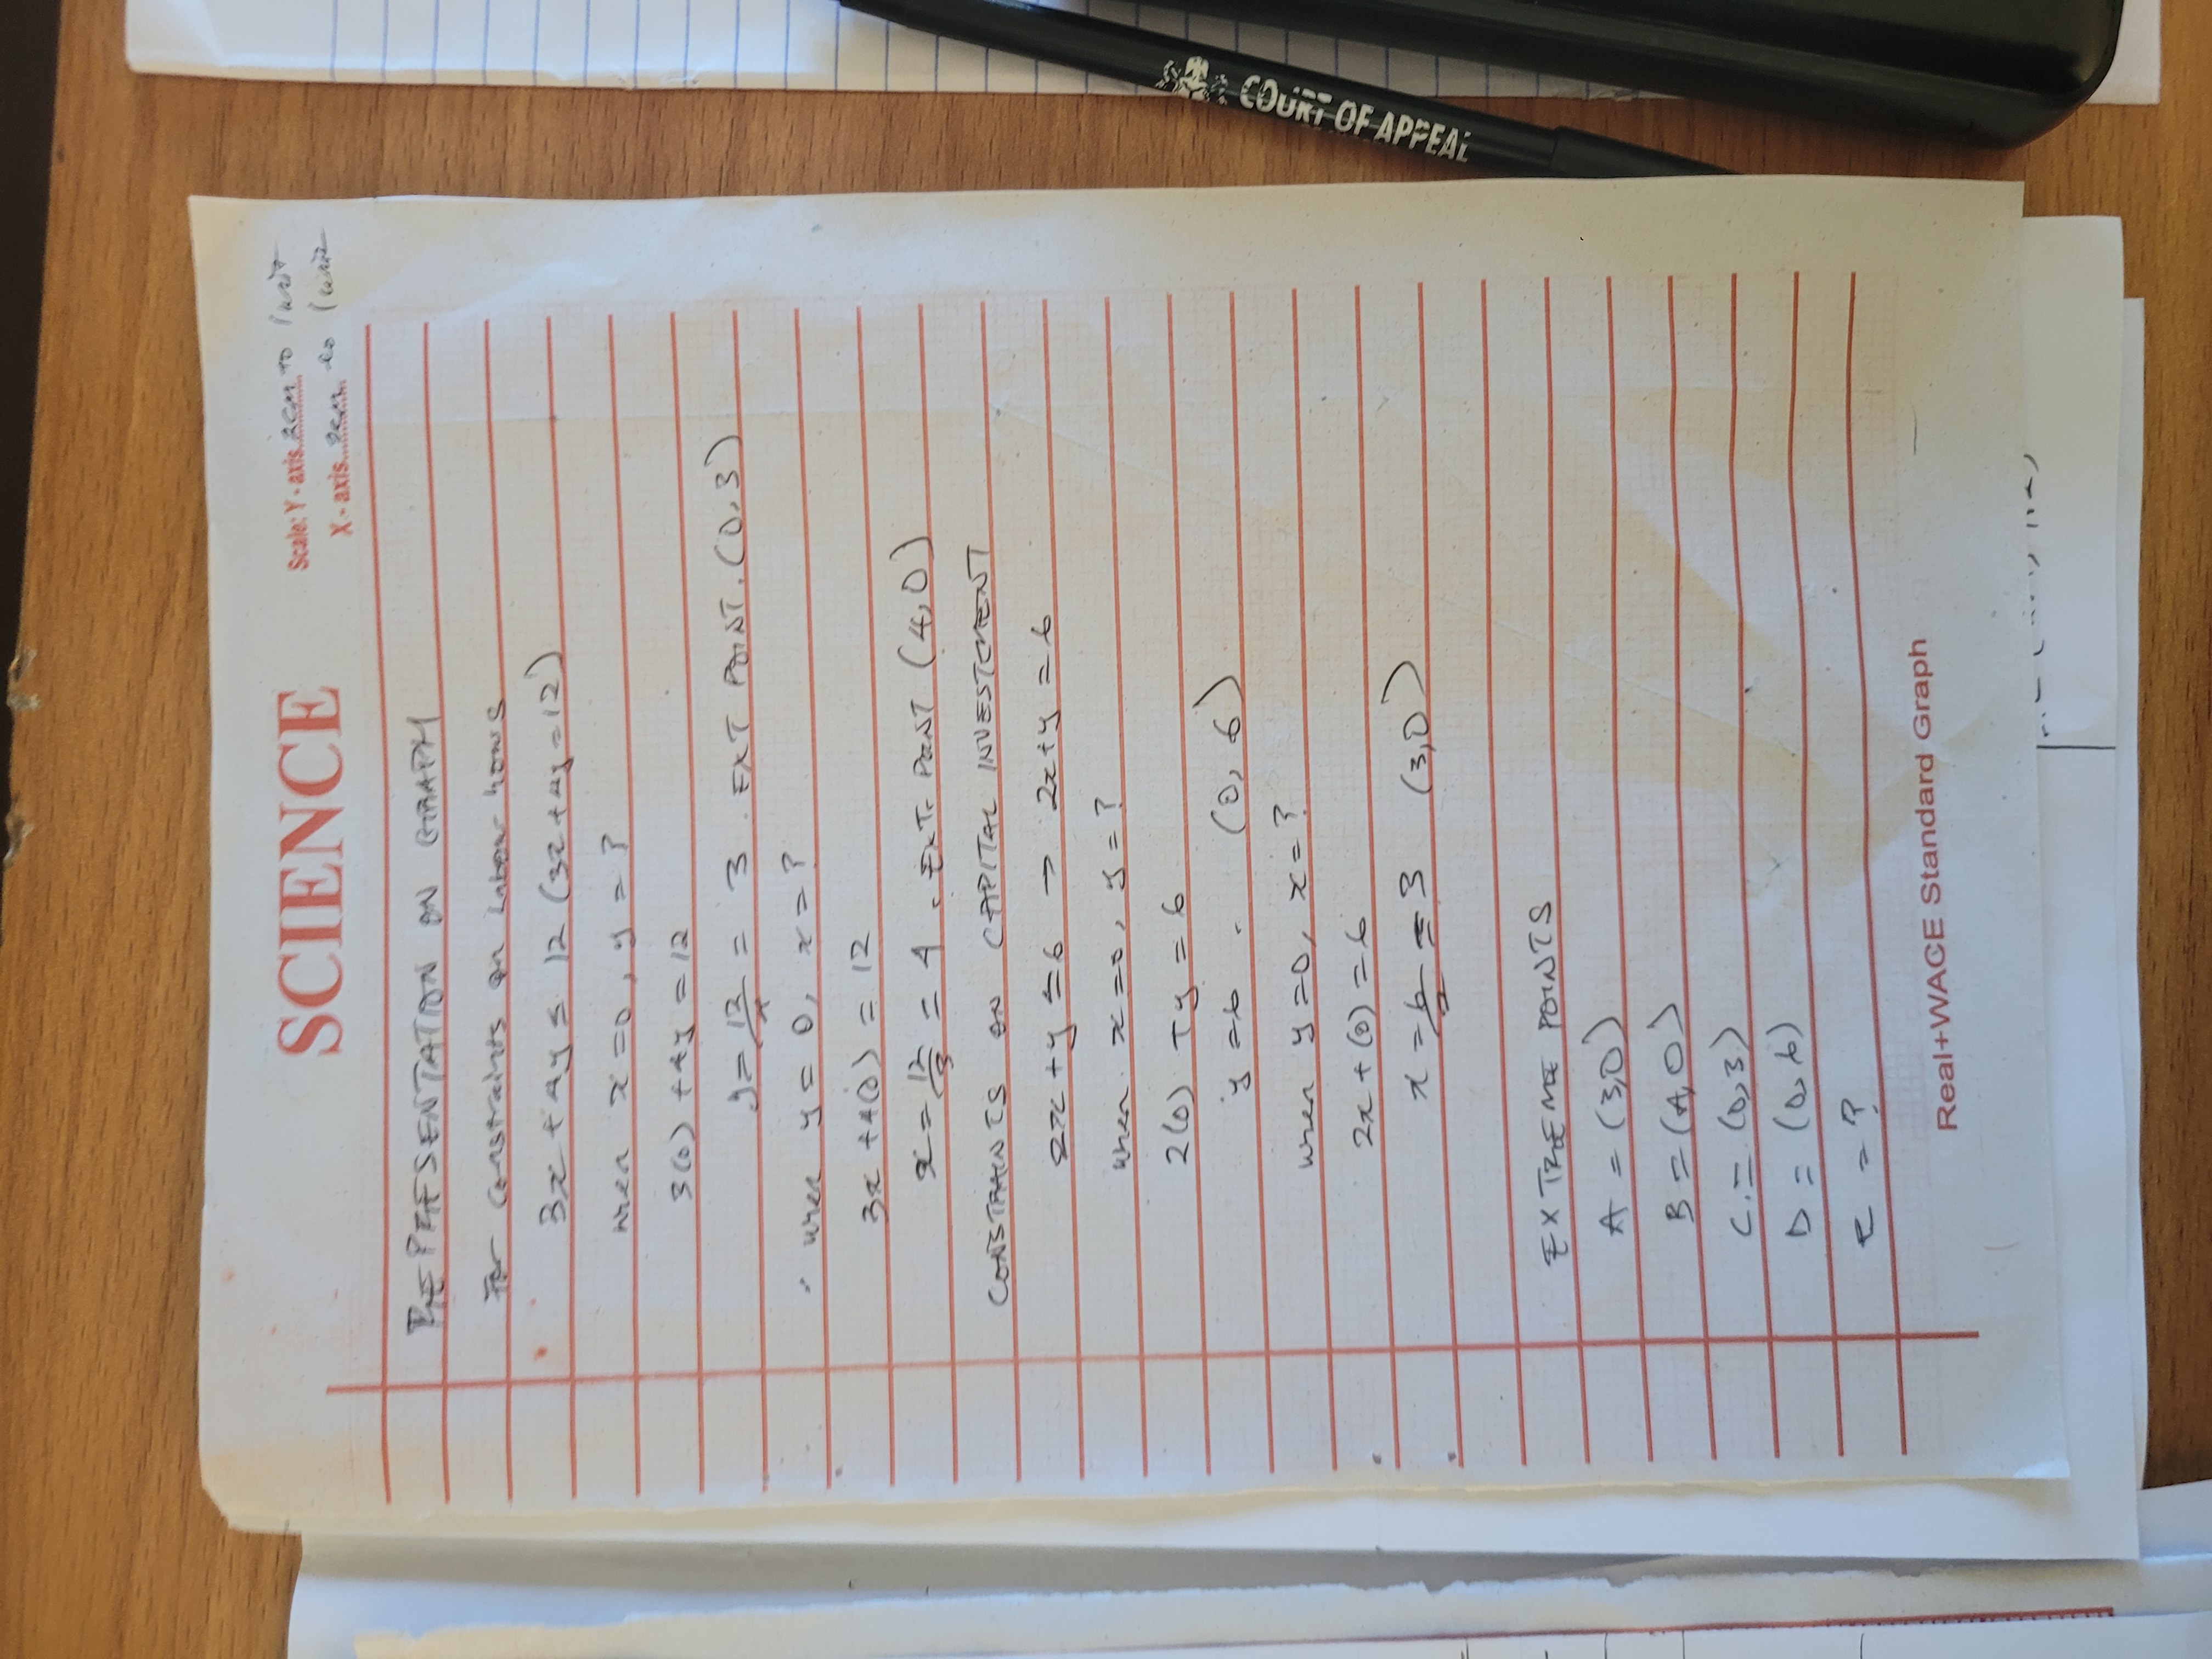 SCIENCE
Scale: Y - axis..2cm to 1 unit
X - axis..2cm to 1 unit
REPRESENTATION ON GRAPH
For constraints on labour hours
3x + 4y ≤ 12 (3x + 4y = 12)
when x = 0, y = ?
3(0) + 4y = 12
y = 12/4 = 3 . EXT POINT. (0,3)
when y = 0, x = ?
3x + 4(0) = 12
x = 12/3 = 4 . EXT. POINT (4,0)
CONSTRAINTS ON CAPITAL INVESTMENT
2x + y ≤ 6 → 2x + y = 6
when x = 0, y = ?
2(0) + y = 6
y = 6 . (0, 6)
when y = 0, x = ?
2x + (0) = 6
x = 6/2 = 3 (3,0)
EXTREME POINTS
A = (3,0)
B = (4,0)
C. = (0,3)
D = (0,6)
E = ?
Real+WACE Standard Graph
COURT OF APPEAL